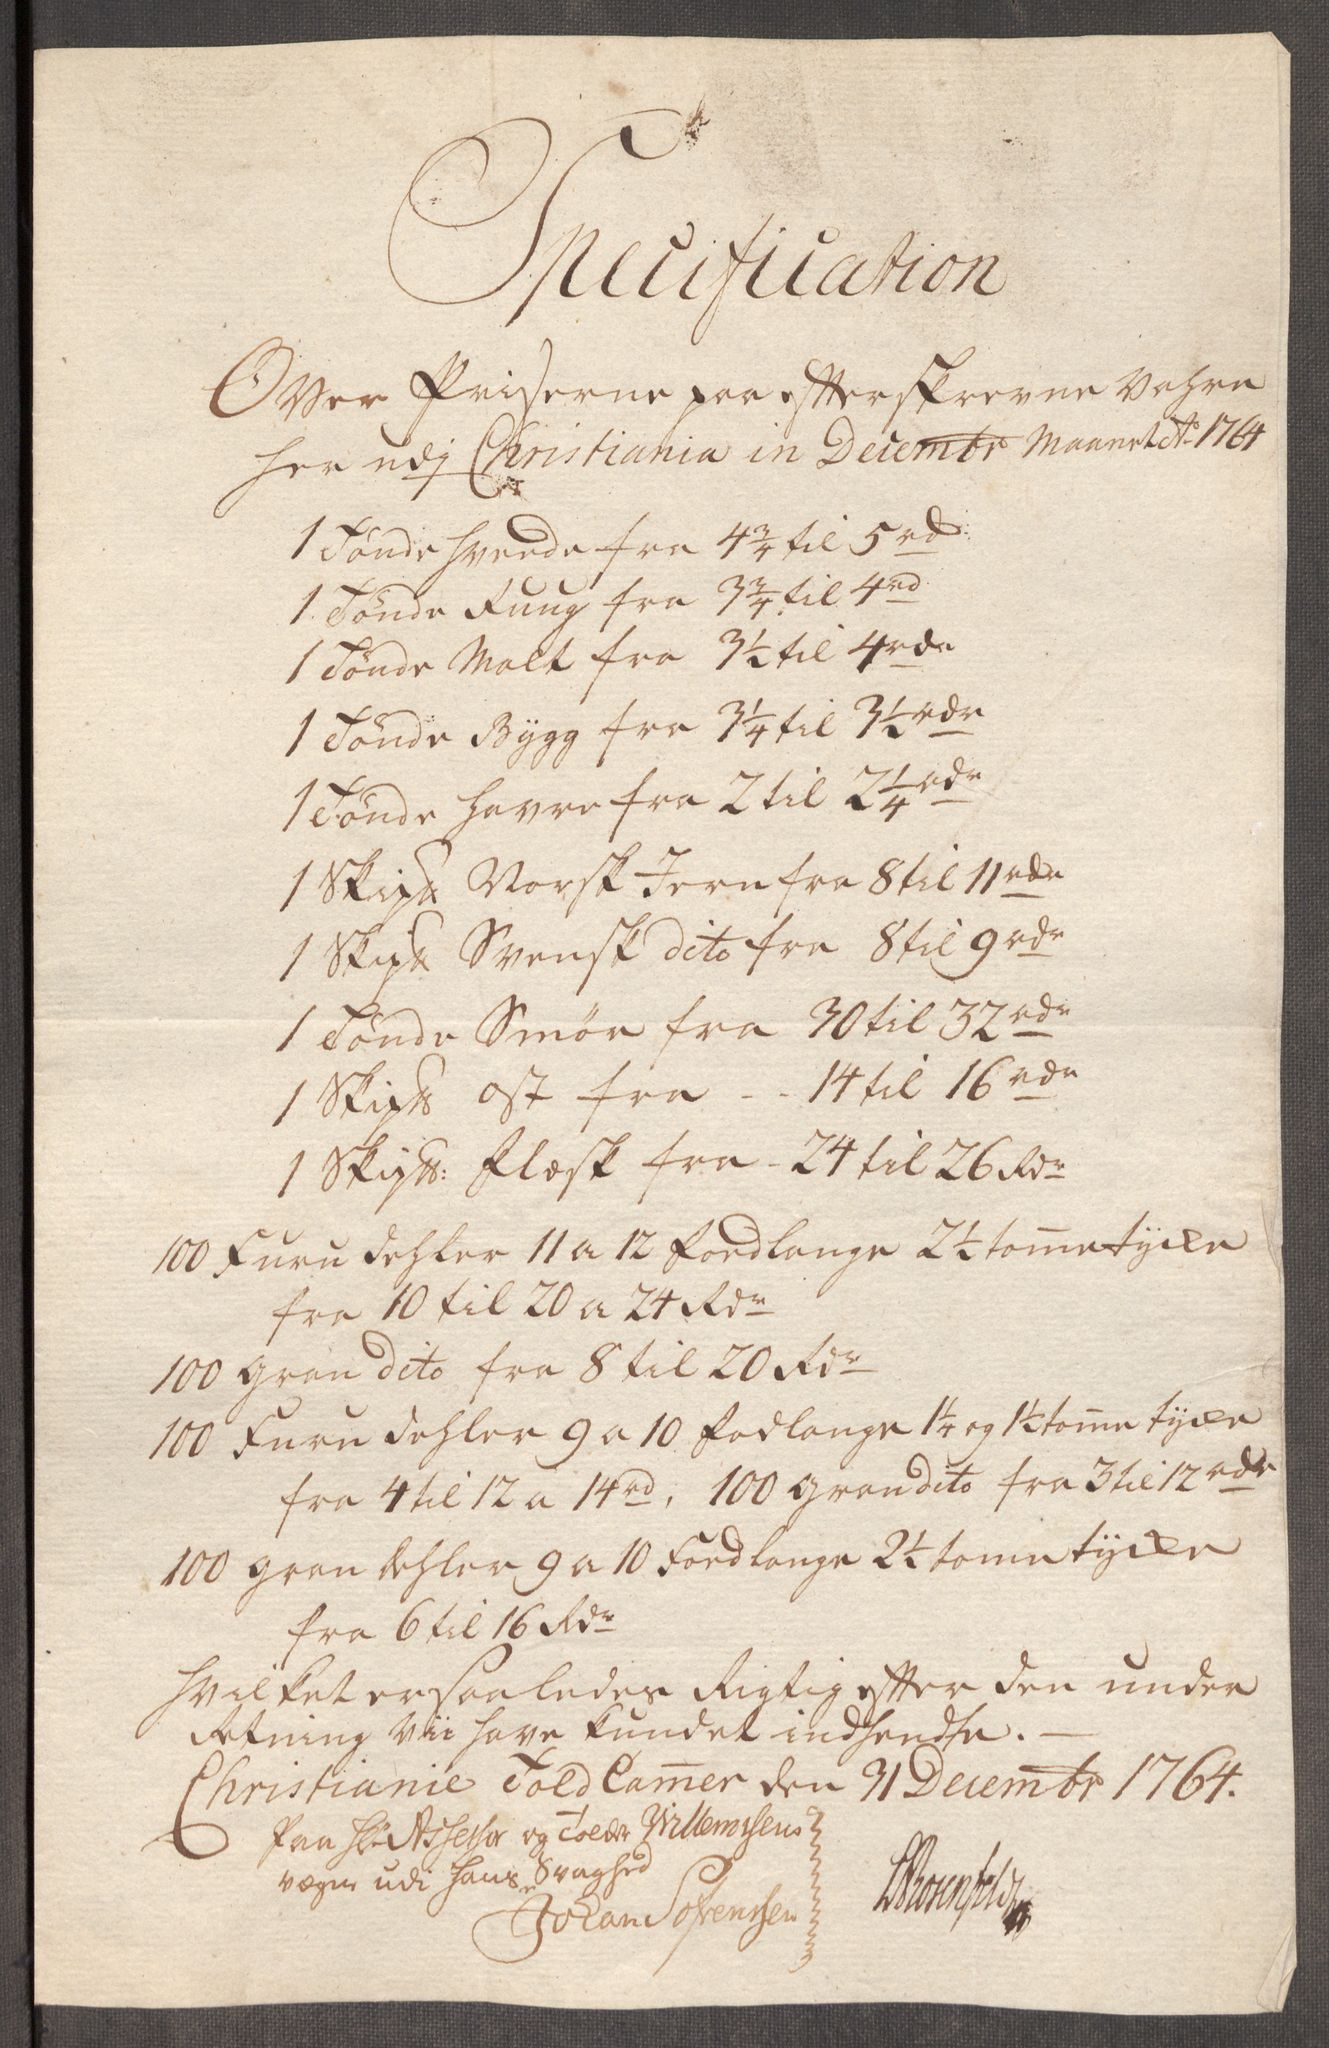 Specification
Over Priserne paa effterskrevne Vahre
her udj Christiania in Decembr Maanet Ao 1764
1 Tönde hvede fra 4 3/4 til 5 rd:
1 Tönde Ruug fra 3 3/4 til 4 rd
1 Tönde Malt fra 3 1/2 til 4 rdr
1 Tönde Bÿgg fra 3 1/4 til 3 1/2 rdr
1 Tönde Havre fra 2 til 2 1/4 rdr
1 Skip℔ Norsk Jern fra 8 til 11 rdr
1 Skip℔ Svensk dito fra 8 til 9 rdr
1 Tönde Smör fra 30 til 32 rdr
1 Skip℔ ost fra - - 14 til 16 rdr
1 Skip℔: Flæsk fra - 24 til 26 Rdr
100 Furu dehler 11 a 12 foedlange 2 1/2 tom̄e tÿcke
fra 10 til 20 a 24 Rdr
100 gran dito fra 8 til 20 Rdr
100 Furu dehler 9 a 10 fodlange 1 1/4 og 1 1/2 tom̄e tÿcke
fra 4 til 12 a 14 rd, 100 gran dito fra 3 til 12 rdr
100 gran dehler 9 a 10 Foedlange 2 1/2 tome tÿcke
fra 6 til 16 Rdr
hvilket er saaledes Rigtig effter den under
Retning Vii have kundet indhendte. —
Christianiæ Told Cam̄er den 31 Decembr 1764.
Paa Hr Assessor og Tolder Willemsens
vegne udi hans Svaghed
Johan Sörenssen
Rosenfeldt